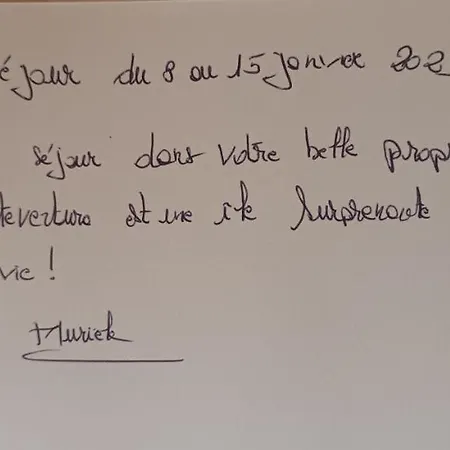 éjour du 8 au 15 janvier 202
séjour dans votre belle propr
teventura est une île surprenante
vie !
Murielle